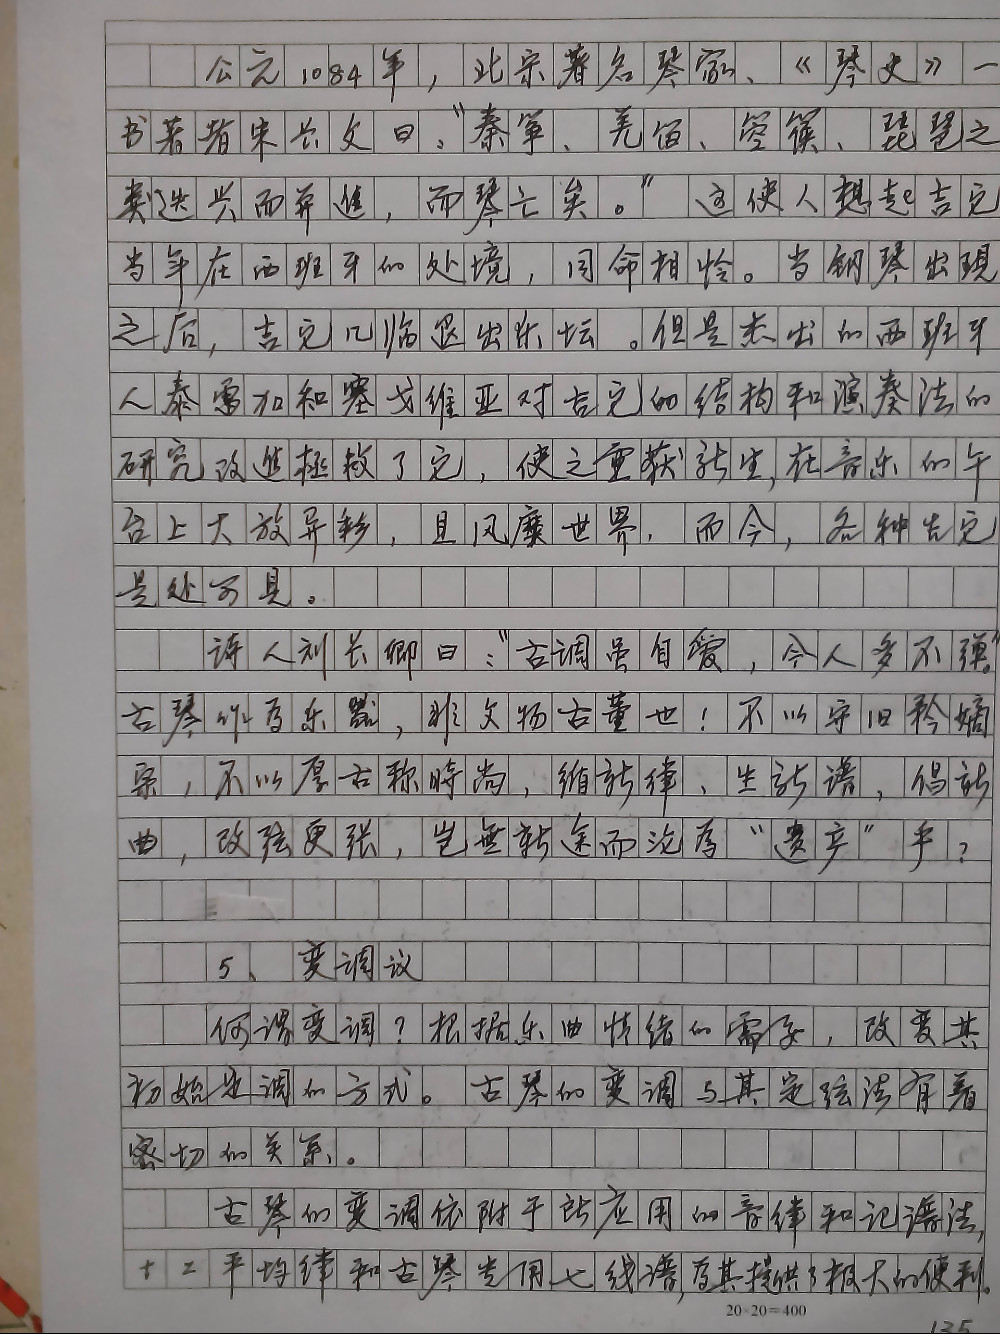 公元1084年，北宋著名琴家、《琴史》一
书著者朱长文曰："秦筝、羌笛、箜篌、琵琶之
类迭兴而并进，而琴亡矣。"这使人想起吉它
当年在西班牙的处境，同命相怜。当钢琴出现
之后，吉它几临退出乐坛。但是杰出的西班牙
人泰雷加和塞戈维亚对吉它的结构和演奏法的
研究改进拯救了它，使之重获新生，在音乐的午
台上大放异彩，且风靡世界，而今，各种吉它
是处可見。
诗人刘长卿曰："古调虽自爱，今人多不弹。"
古琴作为乐器，非文物古董也！不以守旧矜嫡
宗，不以厚古称時尚，缩新律、生新谱，倡新
曲，改弦更张，岂無新途而沦為"遗产"乎？
5、变调议
何谓变调？根据乐曲情绪的需要，改变其
初始定调的方式。古琴的变调与其定弦法有着
密切的关系。
古琴的变调依附于所应用的音律和记谱法，
十二平均律和古琴专用七线谱，為其提供了极大的便利。
20×20=400
135